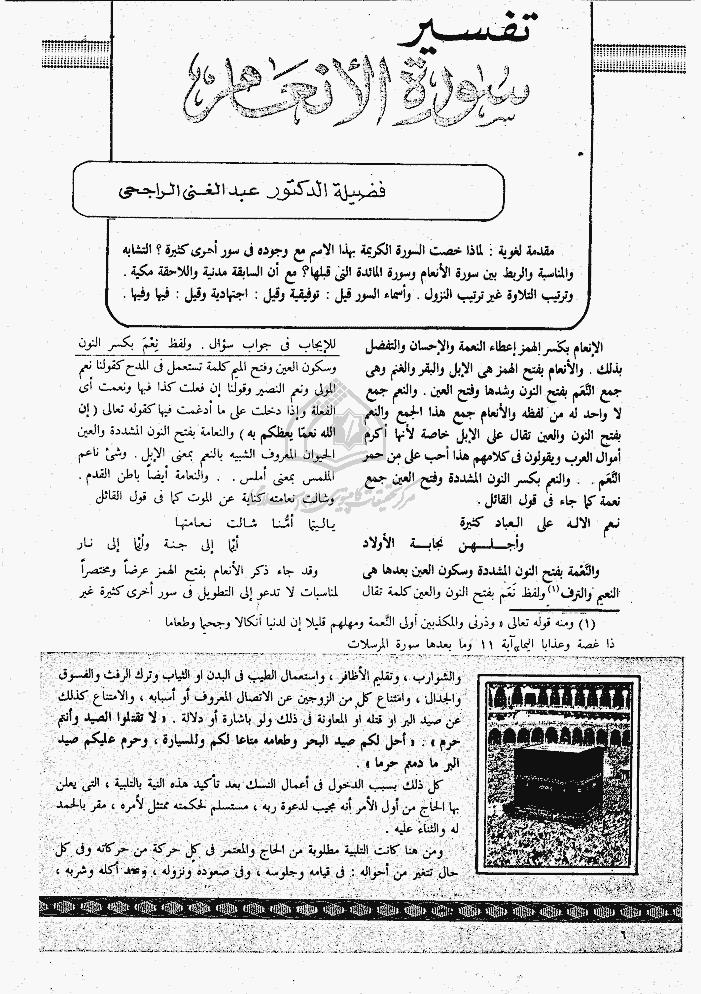 تفسير
سورة الأنعام
فضيلة الدكتور عبد الغنى الراجحى
مقدمة لغوية : لماذا خصت السورة الكريمة بهذا الاسم مع وجوده فى سور أخرى كثيرة ؟ التشابه
والمناسبة والربط بين سورة الأنعام وسورة المائدة التى قبلها؟ مع أن السابقة مدنية واللاحقة مكية .
وترتيب التلاوة غير ترتيب النزول . وأسماء السور قيل : توفيقية وقيل : اجتهادية وقيل : فيها وفيها .
الإنعام بكسر الهمز إعطاء النعمة والإحسان والتفضل
بذلك . والأنعام بفتح الهمز هى الإبل والبقر والغنم وهى
جمع النَّعَم بفتح النون وشدها وفتح العين . والنعم جمع
لا واحد له من لفظه والأنعام جمع هذا الجمع والنعم
بفتح النون والعين تقال على الإبل خاصة لأنها أكرم
أموال العرب ويقولون فى كلامهم هذا أحب على من حمر
النَّعَم . . والنعم بكسر النون المشددة وفتح العين جمع
نعمة كما جاء فى قول القائل .
نعم الاله على العباد كثيرة
وأجلــهن نجابة الأولاد
والنَّعْمة بفتح النون المشددة وسكون العين بعدها هى
النعيم والترف(١) ولفظ نَعَم بفتح النون والعين كلمة تقال
للإيجاب فى جواب سؤال . ولفظ نِعْمَ بكسر النون
وسكون العين وفتح الميم كلمة تستعمل فى المدح كقولنا نعم
المولى ونعم النصير وقولنا إن فعلت كذا فبها ونعمت أى
الفعلة وإذا دخلت على ما أدغمت فيها كقوله تعالى ( إن
الله نعمّا يعظكم به ) والنعامة بفتح النون المشددة والعين
الحيوان المعروف الشبيه بالنعم بمعنى الإبل . وشئ ناعم
الملمس بمعنى أملس . . والنعامة أيضاً باطن القدم .
وشالت نعامته كناية عن الموت كما فى قول القائل
ياليتما أمُّنا شالت نعامتها
أيْما إلى جنة وأيْما إلى نار
وقد جاء ذكر الأنعام بفتح الهمز عرضاً ومختصراً
لمناسبات لا تدعو إلى التطويل فى سور أخرى كثيرة غير
(١) ومنه قوله تعالى « وذرنى والمكذبين أولى النَّعمة ومهلهم قليلا إن لدنيا أنكالا وجحيما وطعاما
ذا غصة وعذابا اليما» آية ١١ وما بعدها سورة المرسلات
والشوارب ، وتقليم الأظافر ، واستعمال الطيب فى البدن او الثياب وترك الرفث والفسوق
والجدال ، وامتناع كل من الزوجين عن الاتصال المعروف أو أسبابه ، والامتناع كذلك
عن صيد البر او قتله او المعاونة فى ذلك ولو باشارة أو دلالة . « لا تقتلوا الصيد وأنتم
حرم » . « أحل لكم صيد البحر وطعامه متاعا لكم وللسيارة ، وحرم عليكم صيد
البر ما دمتم حرما » .
كل ذلك بسبب الدخول فى أعمال النسك بعد تأكيد هذه النية بالتلبية ، التى يعلن
بها الحاج من أول الأمر أنه مجيب لدعوة ربه ، مستسلم لحكمته ممتثل لأمره ، مقر بالحمد
له والثناء عليه .
ومن هنا كانت التلبية مطلوبة من الحاج والمعتمر فى كل حركة من حركاته وفى كل
حال تتغير من أحواله : فى قيامه وجلوسه ، وفى صعوده ونزوله ، وعند أكله وشربه ،
٦